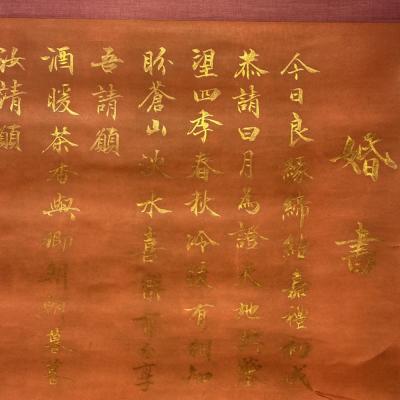 婚書
今日良緣締結嘉禮初成
恭請日月為證天地為鑒
望四季春秋冷暖有相知
盼蒼山泱水喜樂有分享
吾請願
酒暖茶香與卿朝朝暮暮
汝請願